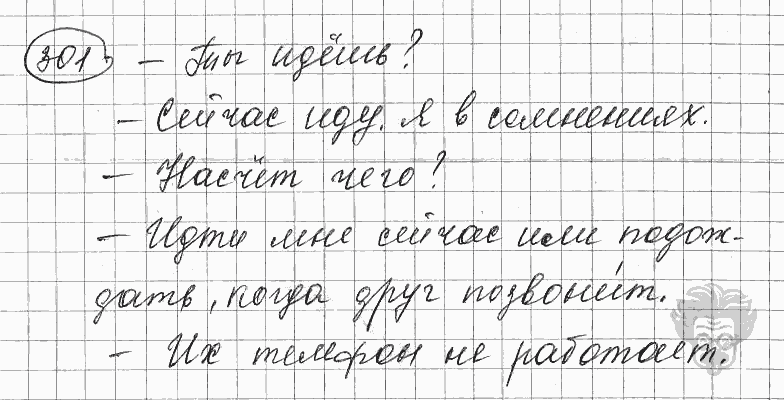 301. – Ты идёшь?
– Сейчас иду. Я в сомнениях.
– Насчёт чего?
– Идти мне сейчас или подож-
дать, когда друг позвони́т.
– Их телефон не работает.